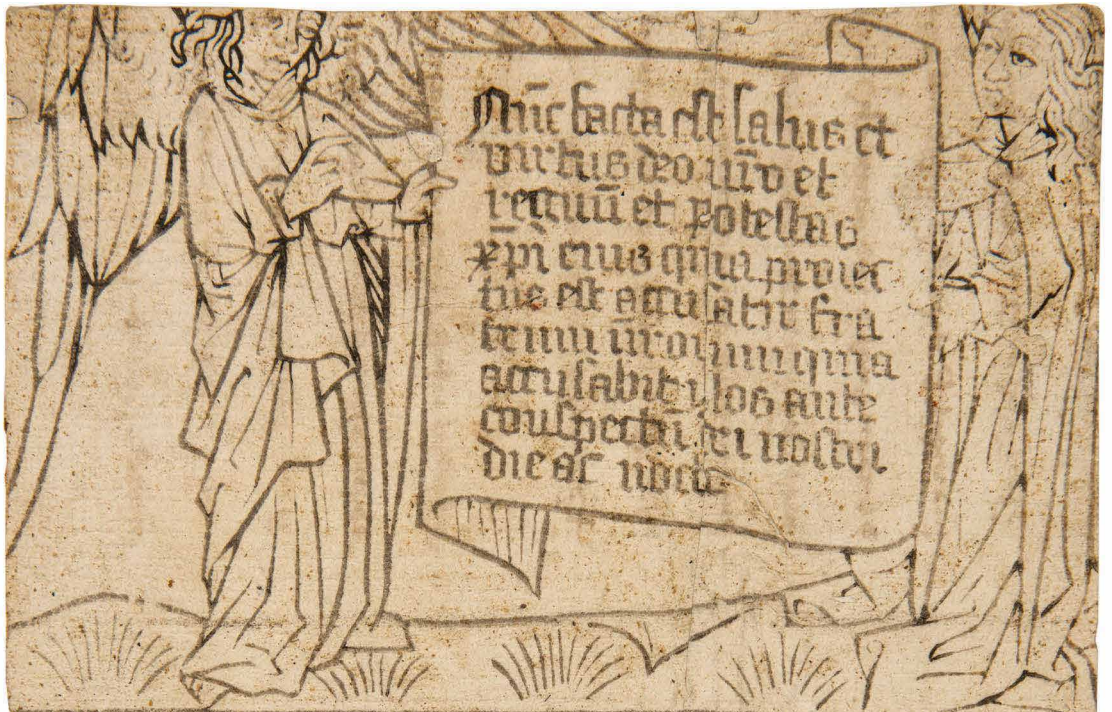 Nūc facta est salus et
virtus deo nr̄o et
regnū et potestas
xp̄i eius quia proiec
tus est accusator fra
trum nrorum quia
accusabit ilos ante
conspectū dei nostri
die ac nocte